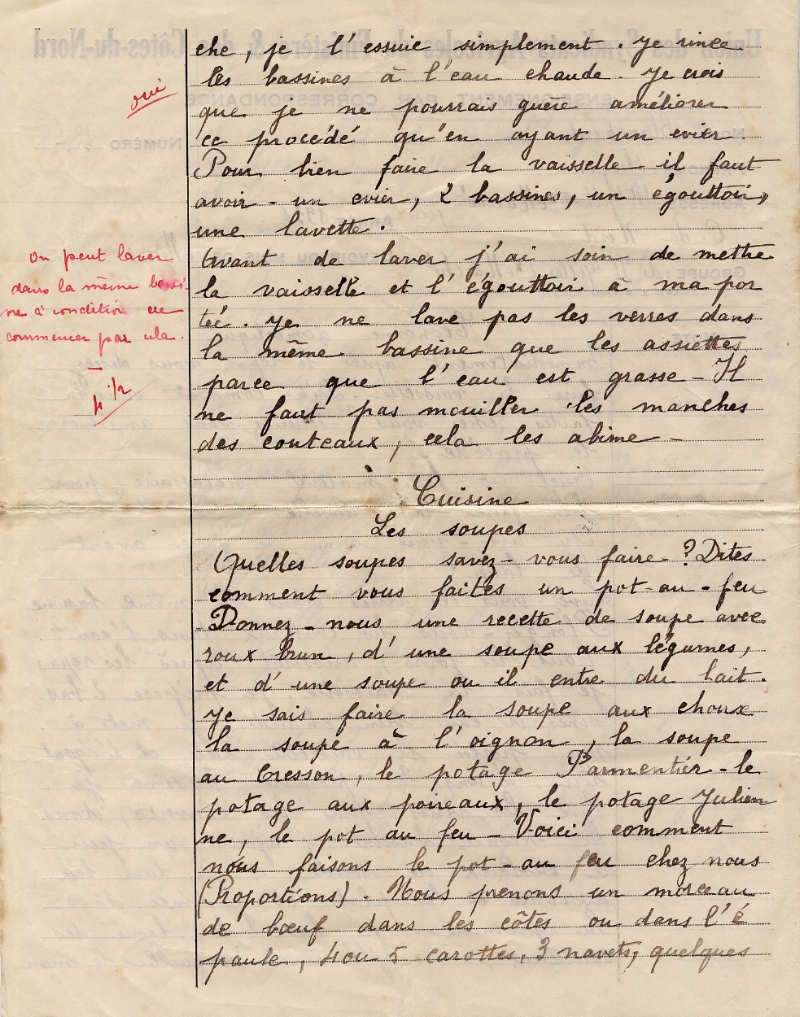 che, je l'essuie simplement. Je rince
les bassines à l'eau chaude. Je crois
oui
que je ne pourrais guère améliorer
ce procédé qu'en ayant un evier.
Pour bien faire la vaisselle il faut
avoir - un evier, 2 bassines, un égouttoir,
une lavette.
Avant de laver j'ai soin de mettre
la vaisselle et l'égouttoir à ma por
teé. Je ne lave pas les verres dans
la même bassine que les assiettes
parce que l'eau est grasse - Il
ne faut pas mouiller les manches
des couteaux, cela les abime -
On peut laver
dans la même bassi
ne à condition de
commencer par cela.
4 1/2
Cuisine
Les soupes
Quelles soupes savez-vous faire ? Dites
comment vous faites un pot-au-feu
Donnez-nous une recette de soupe avec
roux brun, d'une soupe aux légumes,
et d'une soupe ou il entre du lait.
Je sais faire la soupe aux choux
la soupe à l'oignon, la soupe
au Cresson, le potage Parmentier - le
potage aux poireaux, le potage Julien
ne, le pot au feu - Voici comment
nous faisons le pot-au feu chez nous
(Proportions). Nous prenons un morceau
de bœuf dans les côtes ou dans l'é
paule, 4 ou 5 carottes, 3 navets, quelques